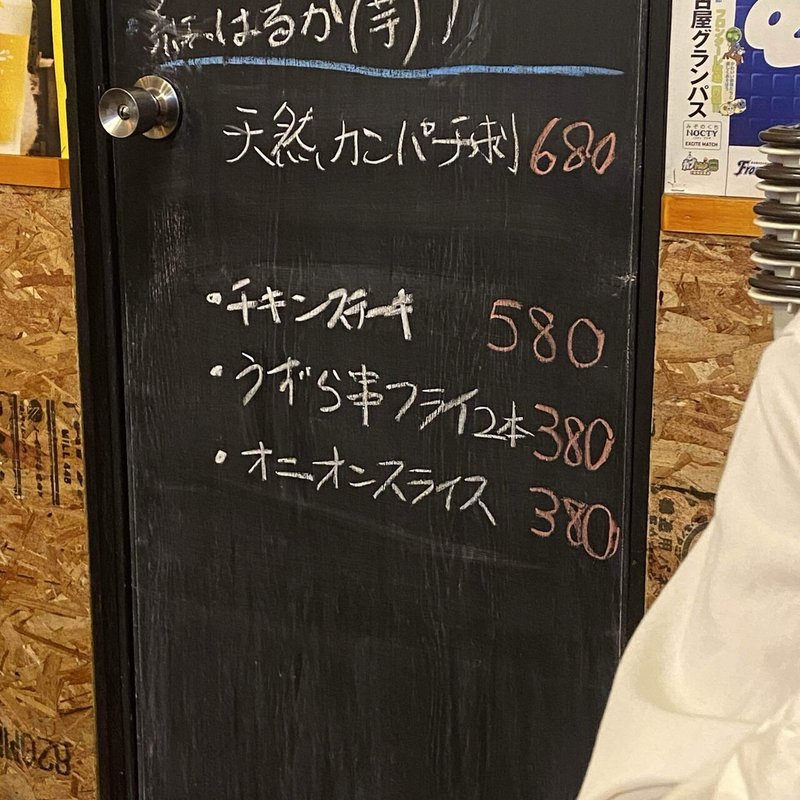 はるか(芋)
天然カンパチ刺 680
・チキンステーキ 580
・うずら串フライ2本 380
・オニオンスライス 380
古屋グランパス
みぞのくち
NOCTY
EXCITE MATCH
Fro
MILL 448